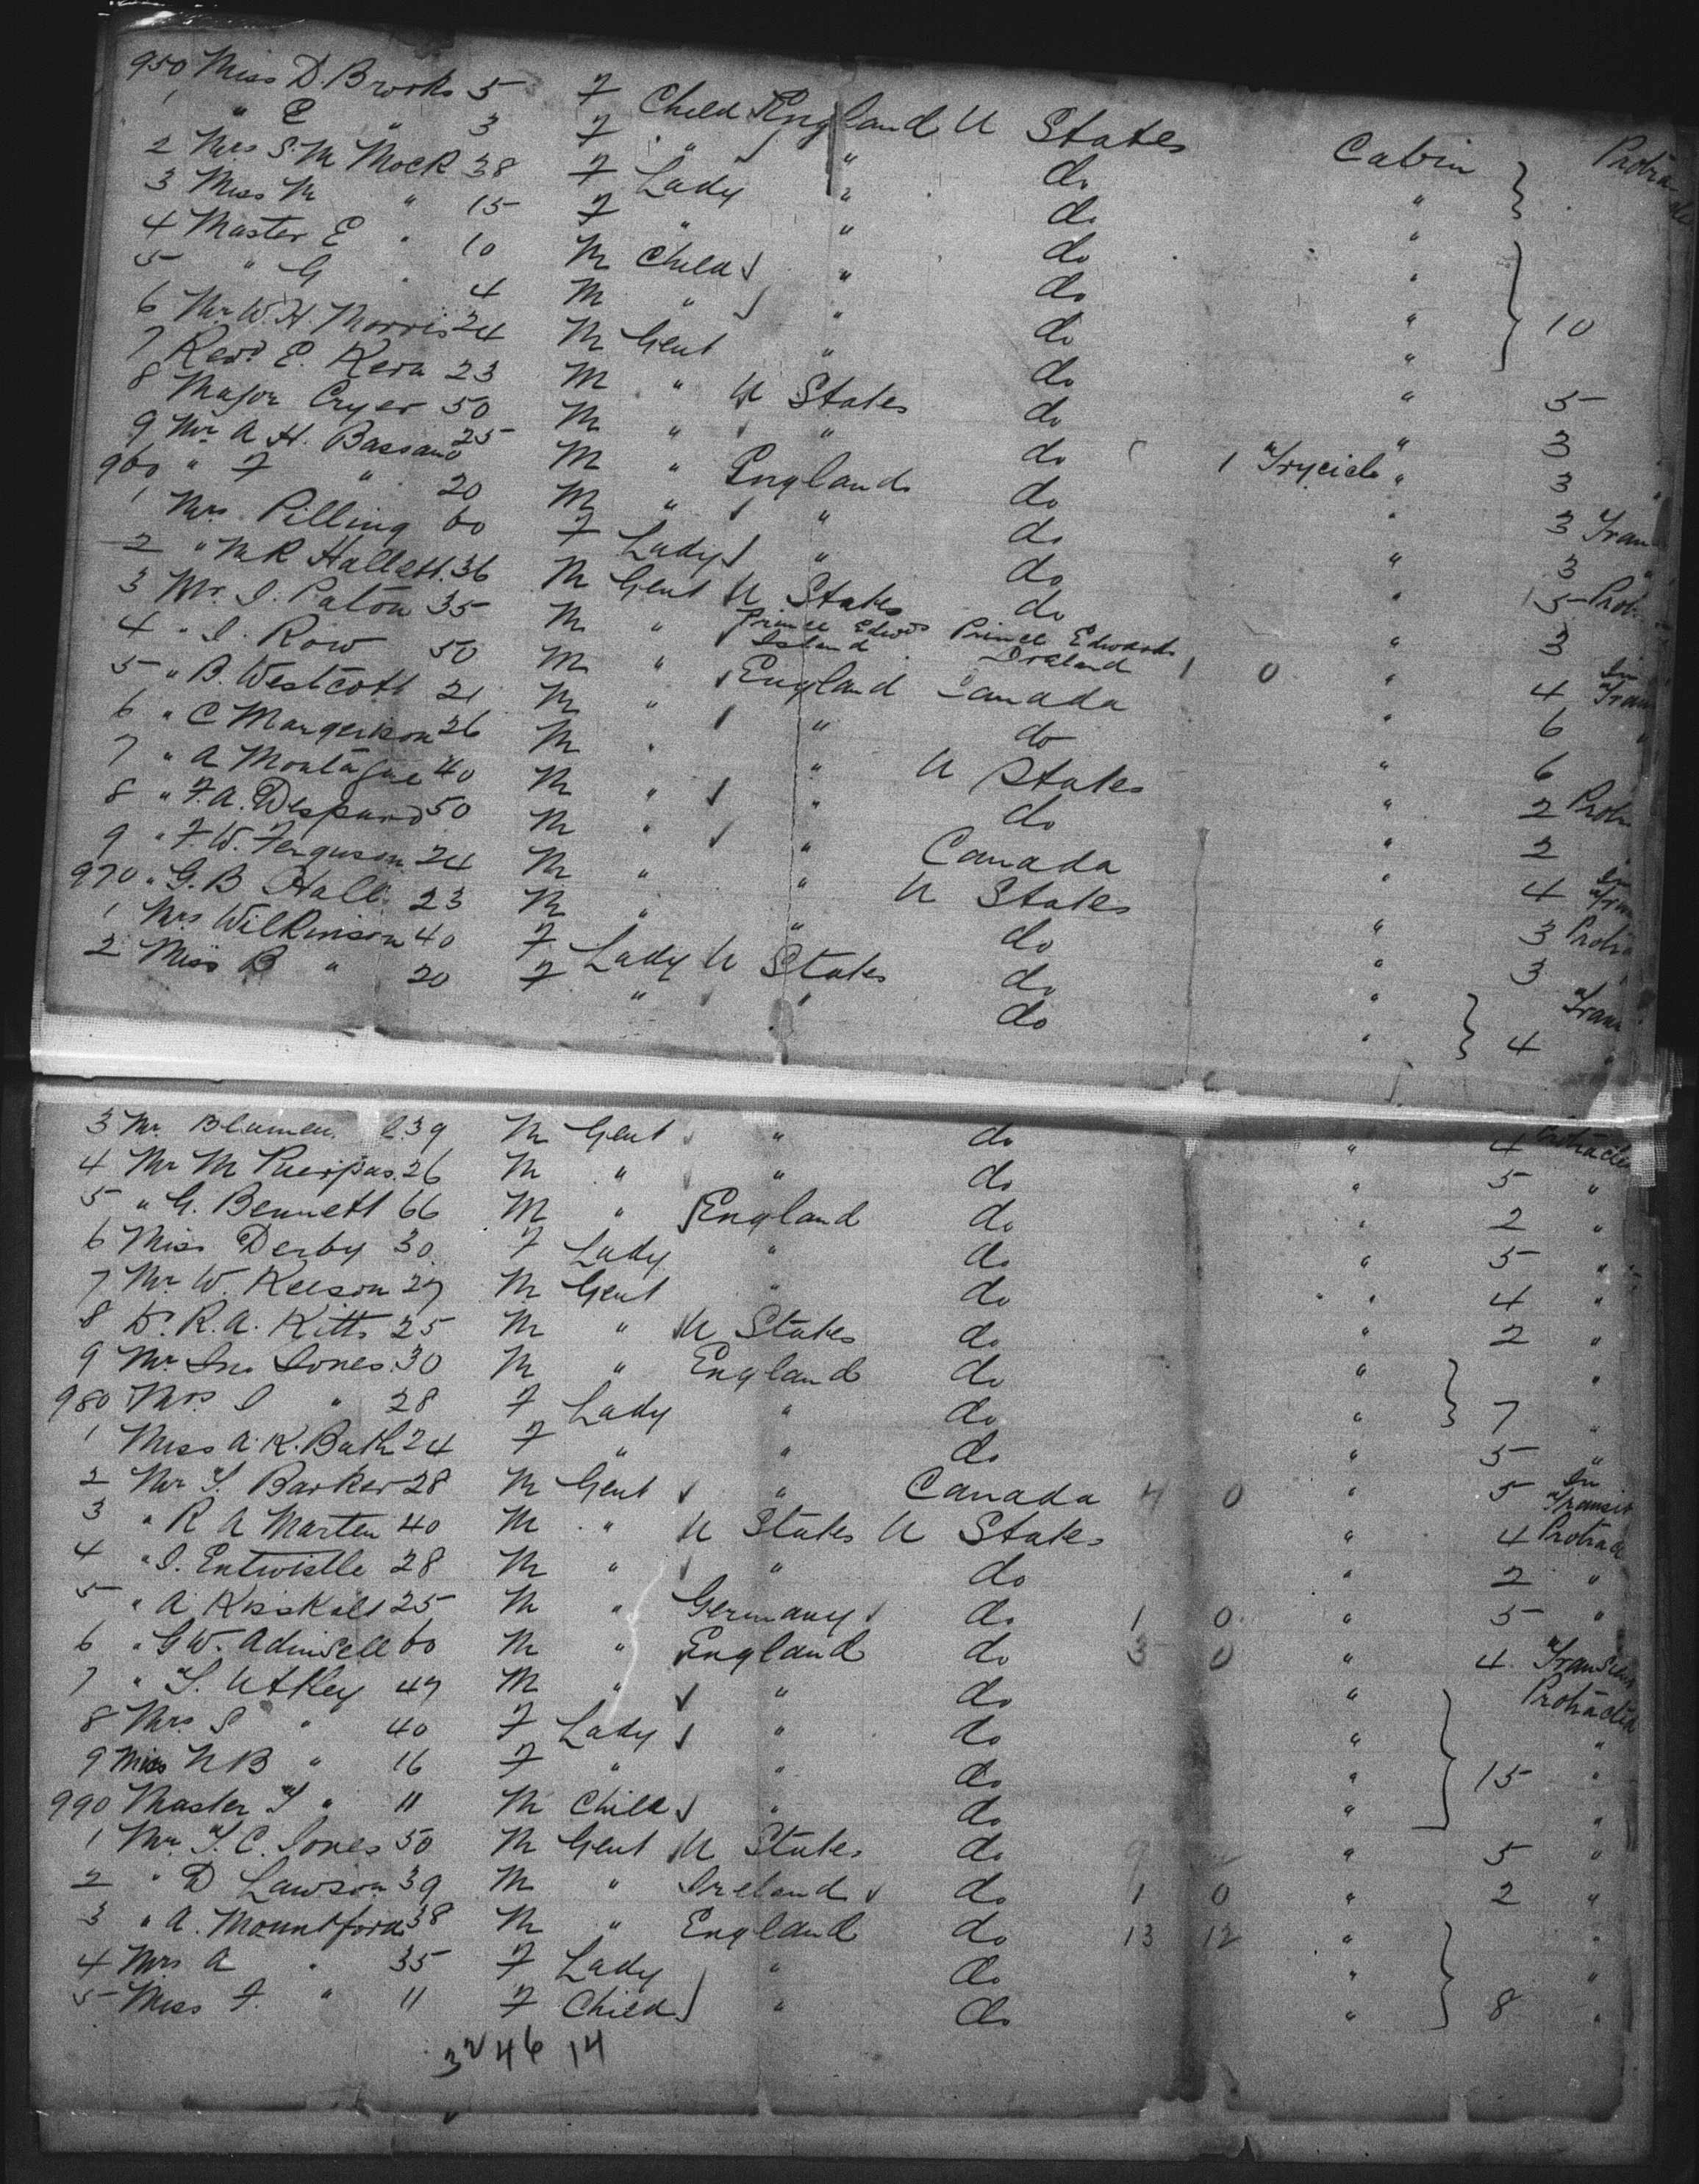 950 Miss D. Brooks 5 F Child England U States Cabin
1 " E " 3 F " " do "
2 Mrs S. M Mock 38 F Lady " do "
3 Miss M " 15 F " " do "
4 Master E " 10 M Child " do "
5 " G " 4 M " " do " 10
6 Mr W. H. Morris 24 M Gent " do " 5
7 Revd E. Kern 23 M " U States do " 3
8 Major Cryer 50 M " " do 1 Trycicle " 3
9 Mr A H. Bassano 25 M " England do " 3
960 " F " 20 M " " do " 3
1 Mrs. Pilling 60 F Lady " do "
2 " M R Hallett 36 M Gent U States do " 3
3 Mr. I. Paton 35 M " Prince Edwds Island Prince Edwards Island 1 0 " 4 In
4 " I. Row 50 M " England Canada " 6
5 " B. Westcott 21 M " " do " 6
6 " C Margerison 26 M " " U States " 2
7 " A Montague 40 M " " do " 2
8 " F. A. Despard 50 M " " Canada " 4
9 " F. W. Ferguson 24 M " " U States " 3
970 " G. B Hall 23 M " " do " 3
1 Mrs Wilkinson 40 F Lady U States do "
2 Miss B " 20 F " " do " 4 "
3 Mr. Blumen 39 M Gent " do " 4
4 Mr M 26 M " " do " 5 "
5 " G. Bennett 66 M " England do " 2 "
6 Miss Derby 30 F Lady " do " 5 "
7 Mr W. Keeson 27 M Gent " do " 4 "
8 Dr. R. A. Kitts 25 M " U States do " 2 "
9 Mr Jno Jones 30 M " England do " "
980 Mrs J " 28 F Lady " do " 7 "
1 Miss A. K. Bath 24 F " " do " 5 "
2 Mr T. Barker 28 M Gent " Canada 4 0 " 5 In Transit
3 " R A Marten 40 M " U States U States " 4
4 " J. Entwistle 28 M " " do " 2 "
5 " A 25 M " Germany do 1 0 " 5 "
6 " G W. Adinsell 60 M " England do 3 0 " 4
7 " T. Utley 47 M " " do " Protracted
8 Mrs S " 40 F Lady " do " "
9 Miss N B " 16 F " " do " 15 "
990 Master T " 11 M Child " do " "
1 Mr. T. C. Jones 50 M Gent U States do " 5 "
2 " D Lawson 39 M " Ireland do 1 0 " 2 "
3 " A. Mountford 38 M " England do 13 12 " "
4 Mrs A " 35 F Lady " do " "
5 Miss F. " 11 F Child " do " 8 "
32 46 14